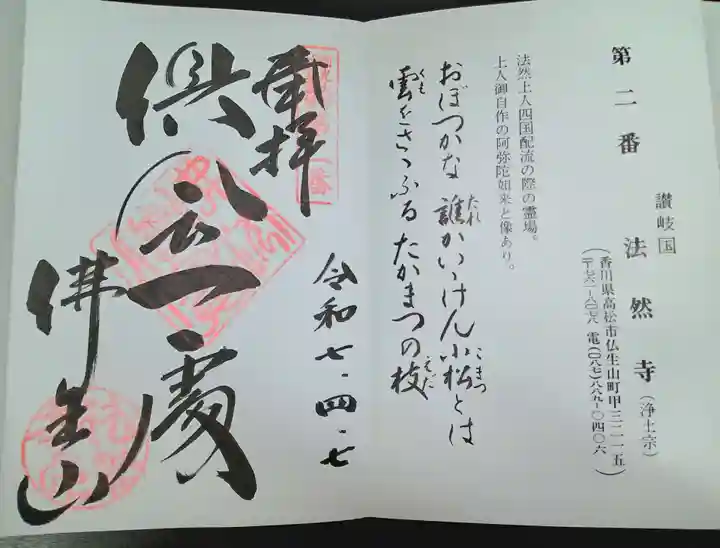 第二番
讃岐国
法然寺(浄土宗)
(香川県高松市仏生山町甲三二一五
〒七六一-八〇七八 電(〇八七)八八九-〇四〇六)
法然上人四国配流の際の霊場。
上人御自作の阿弥陀如来と像あり。
おぼつかな 誰かいいけん小松とは
たれ
こまつ
雲をさゝふる たかまつの枝
くも
えだ
奉拝
令和七、四、七
倶会一處
佛生山